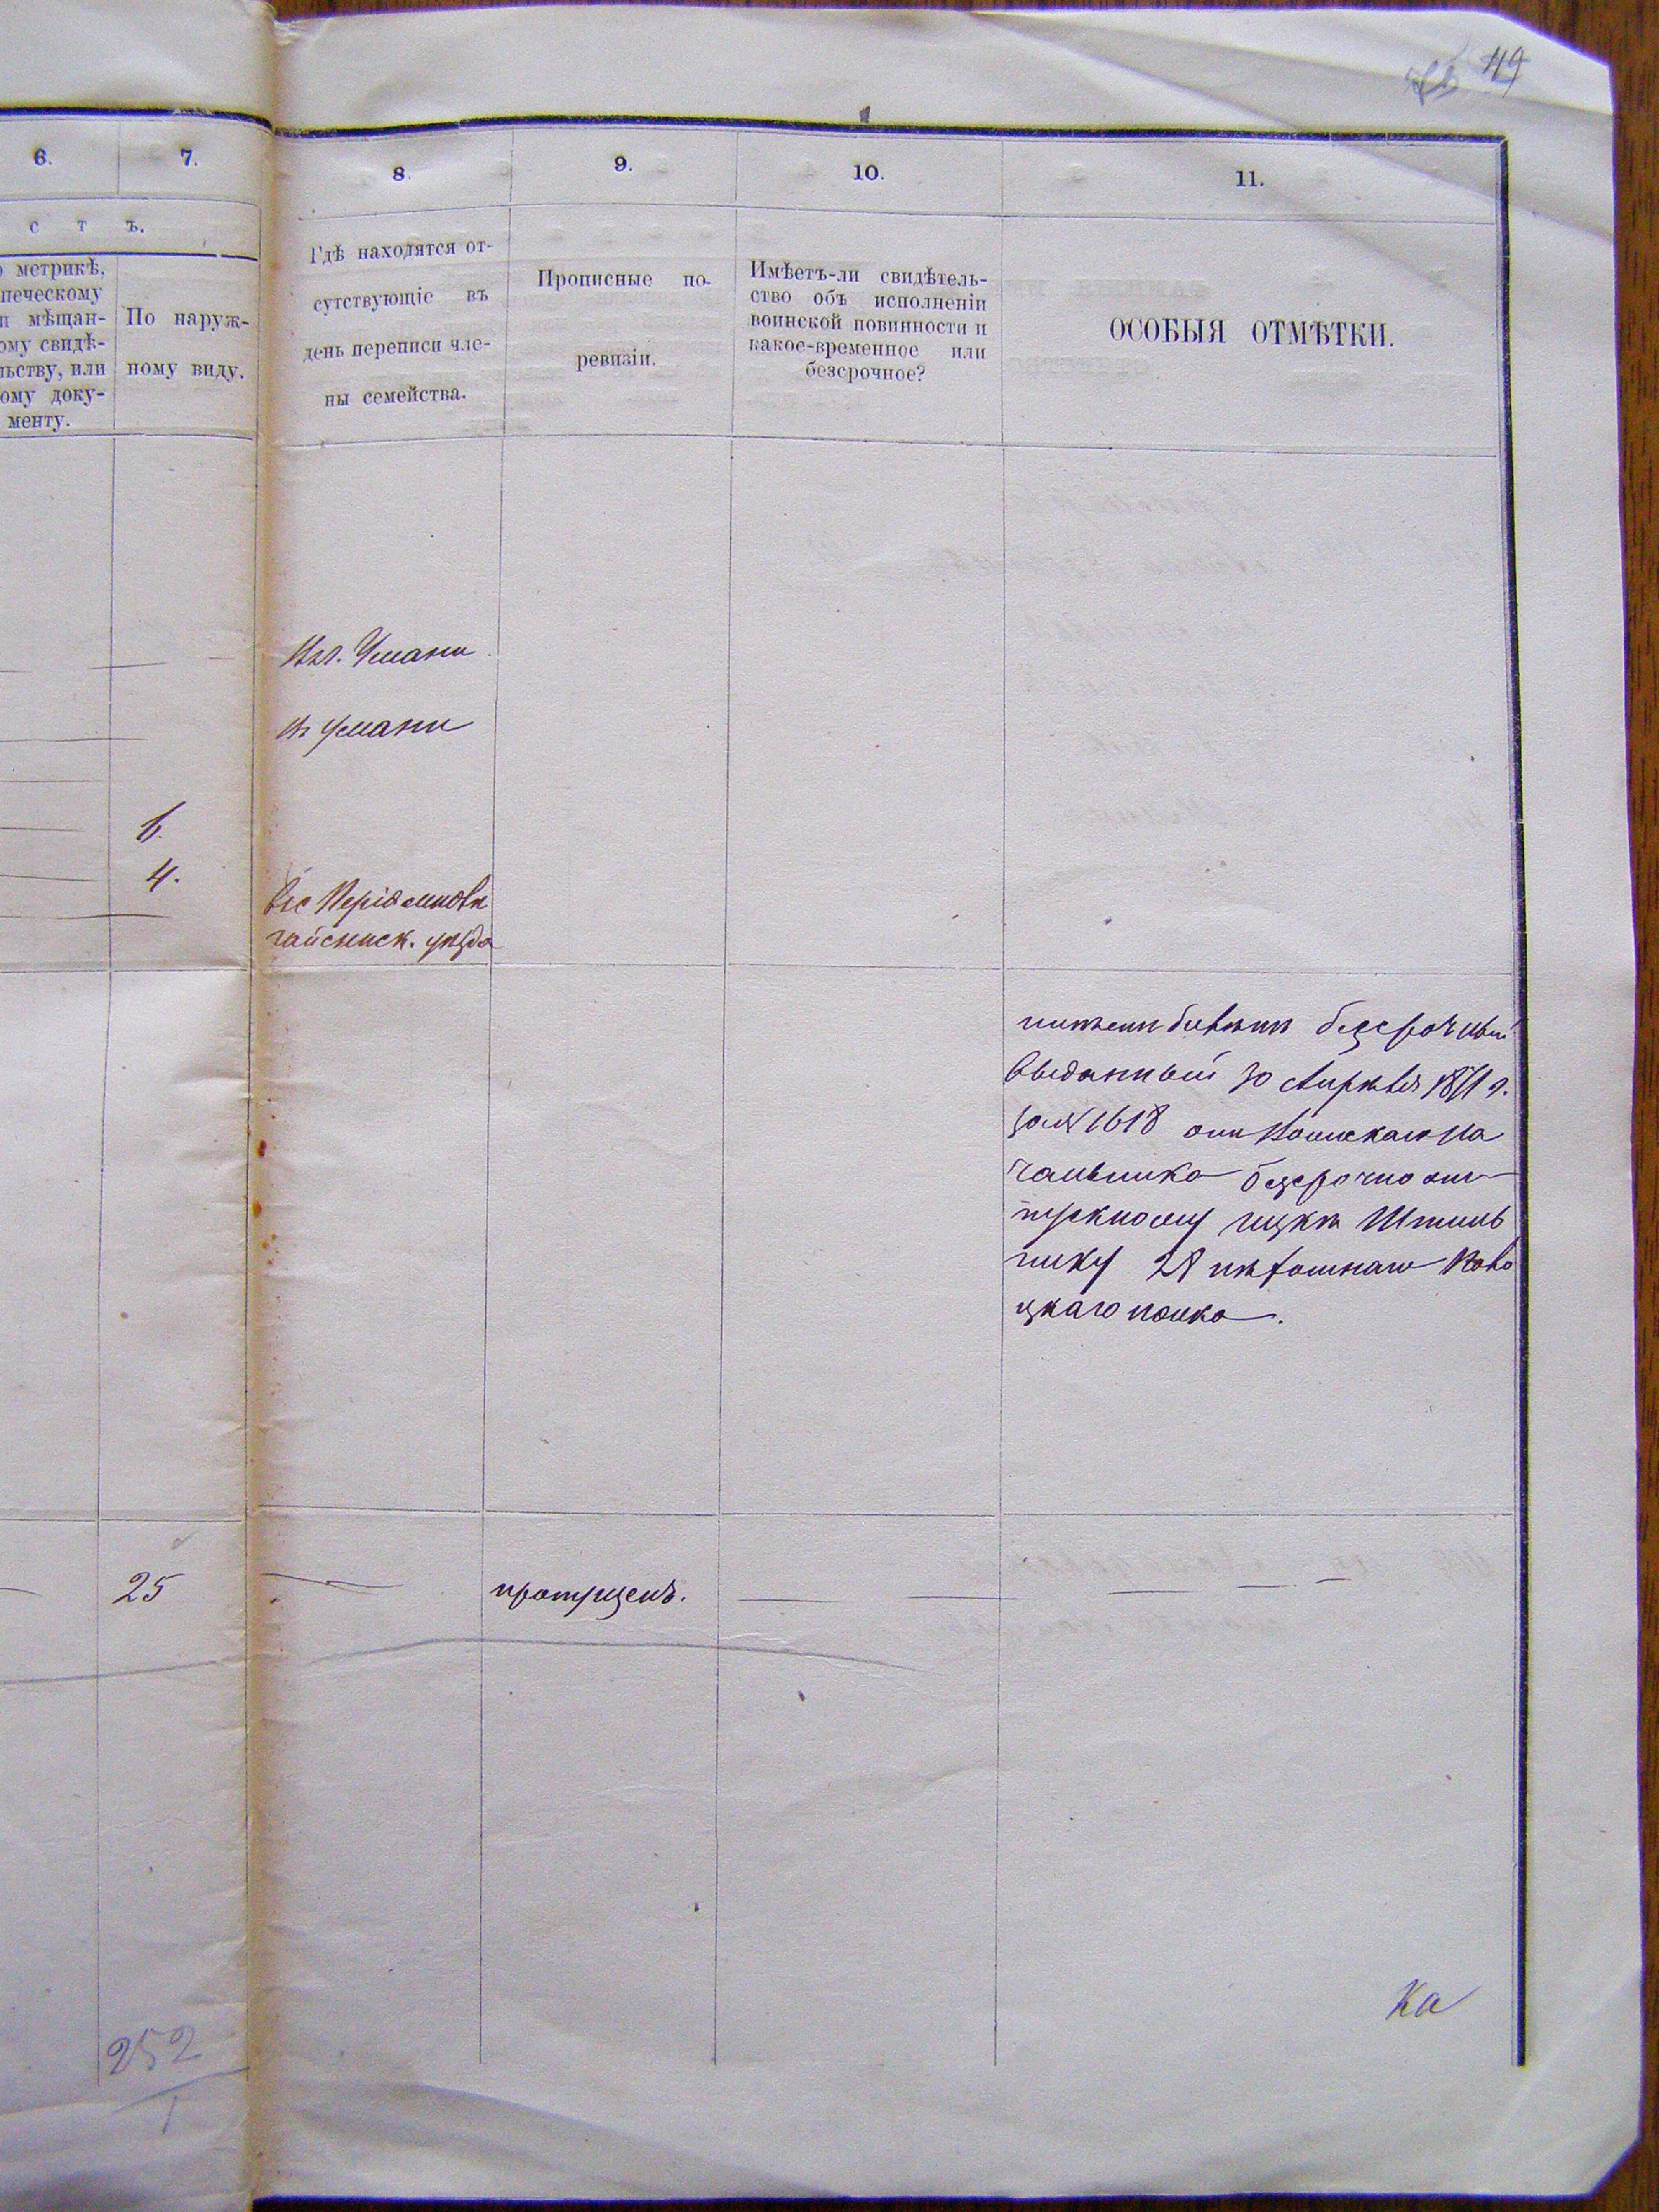 49
6.
7.
8.
9.
10.
11.
с т ъ.
о метрикѣ,
печескому
и мѣщан-
ому свидѣ-
льству, или
ому доку-
менту.
По наруж-
ному виду.
Гдѣ находятся от-
сутствующіе въ
день переписи чле-
ны семейства.
Прописные по-
ревизіи.
Имѣетъ-ли свидѣтель-
ство объ исполненіи
воинской повинности и
какое-временное или
безсрочное?
ОСОБЫЯ ОТМѢТКИ.
Въ г. Умани
въ Умани
6.
4.
Въ с
гайсинск. уѣзда
билетъ безсрочный
выданный 30 Апрѣля 1871 г.
за № 1618 отъ Воинскаго На
чальника безсрочно от-
пускному
28 пѣхотнаго
полка.
25
пропущенъ.
Ка
252
1